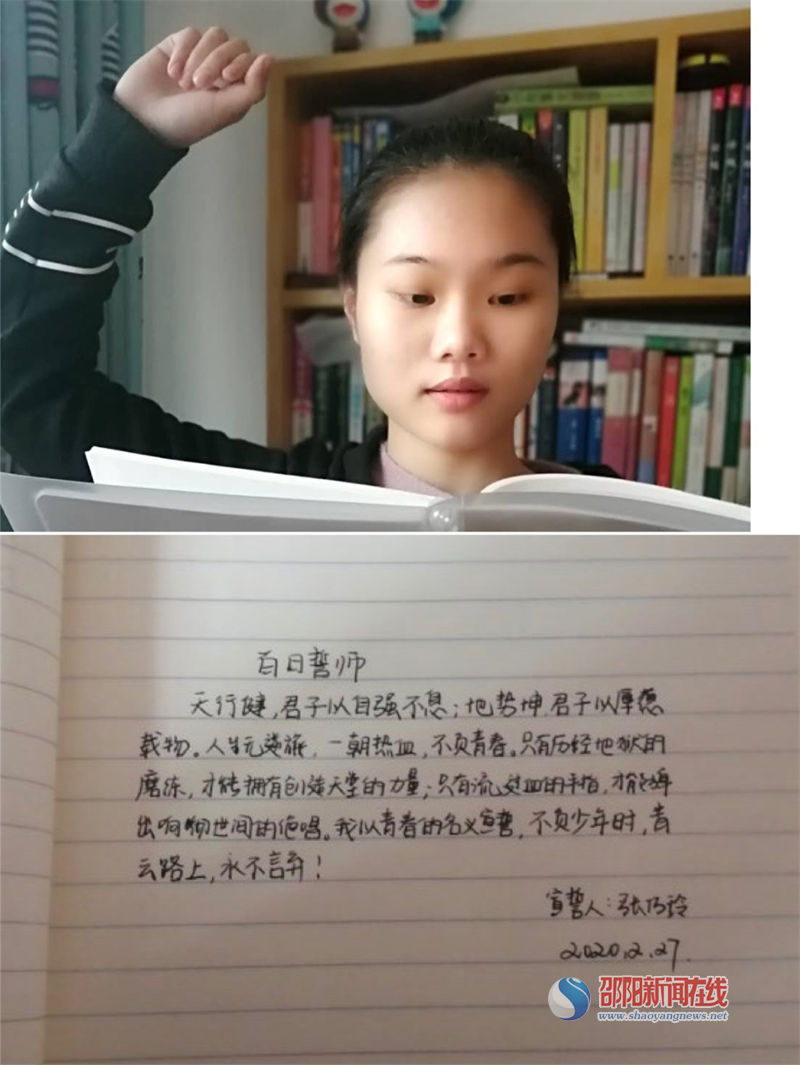 百日誓师
天行健,君子以自强不息;地势坤,君子以厚德
载物。人生无逆旅,一朝热血,不负青春。只有历经地狱的
磨练,才能拥有创造天堂的力量;只有流过血的手指,才能弹
出响彻世间的绝唱。我以青春的名义宣誓,不负少年时,青
云路上,永不言弃!
宣誓人:张乃玲
2020.2.27.
邵阳新闻在线
www.shaoyangnews.net